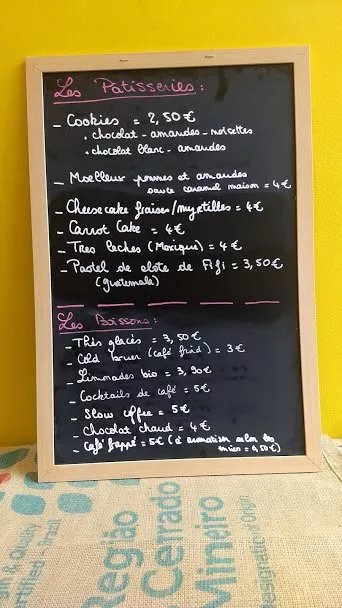 Les Patisseries :
- Cookies = 2,50€
• chocolat - amandes - noisettes
• chocolat blanc - amandes
- Moelleux pommes et amandes
sauce caramel maison = 4€
- Cheesecake fraises/myrtilles = 4€
- Carrot Cake = 4€
- Tres leches (Mexique) = 4€
- Pastel de elote de Fifi = 3,50€
(guatemala)
Les Boissons :
- Thés glacés = 3,50€
- Cold brew (café froid) = 3€
- Limonades bio = 3,90€
- Cocktails de café = 5€
- Slow coffee = 5€
- Chocolat chaud = 4€
- Café frappé = 5€ (à aromatiser selon les
envies = 0,50€)
& Quality
ertified - Brazil
Região
Cerrado
Mineiro
esignation of Origin